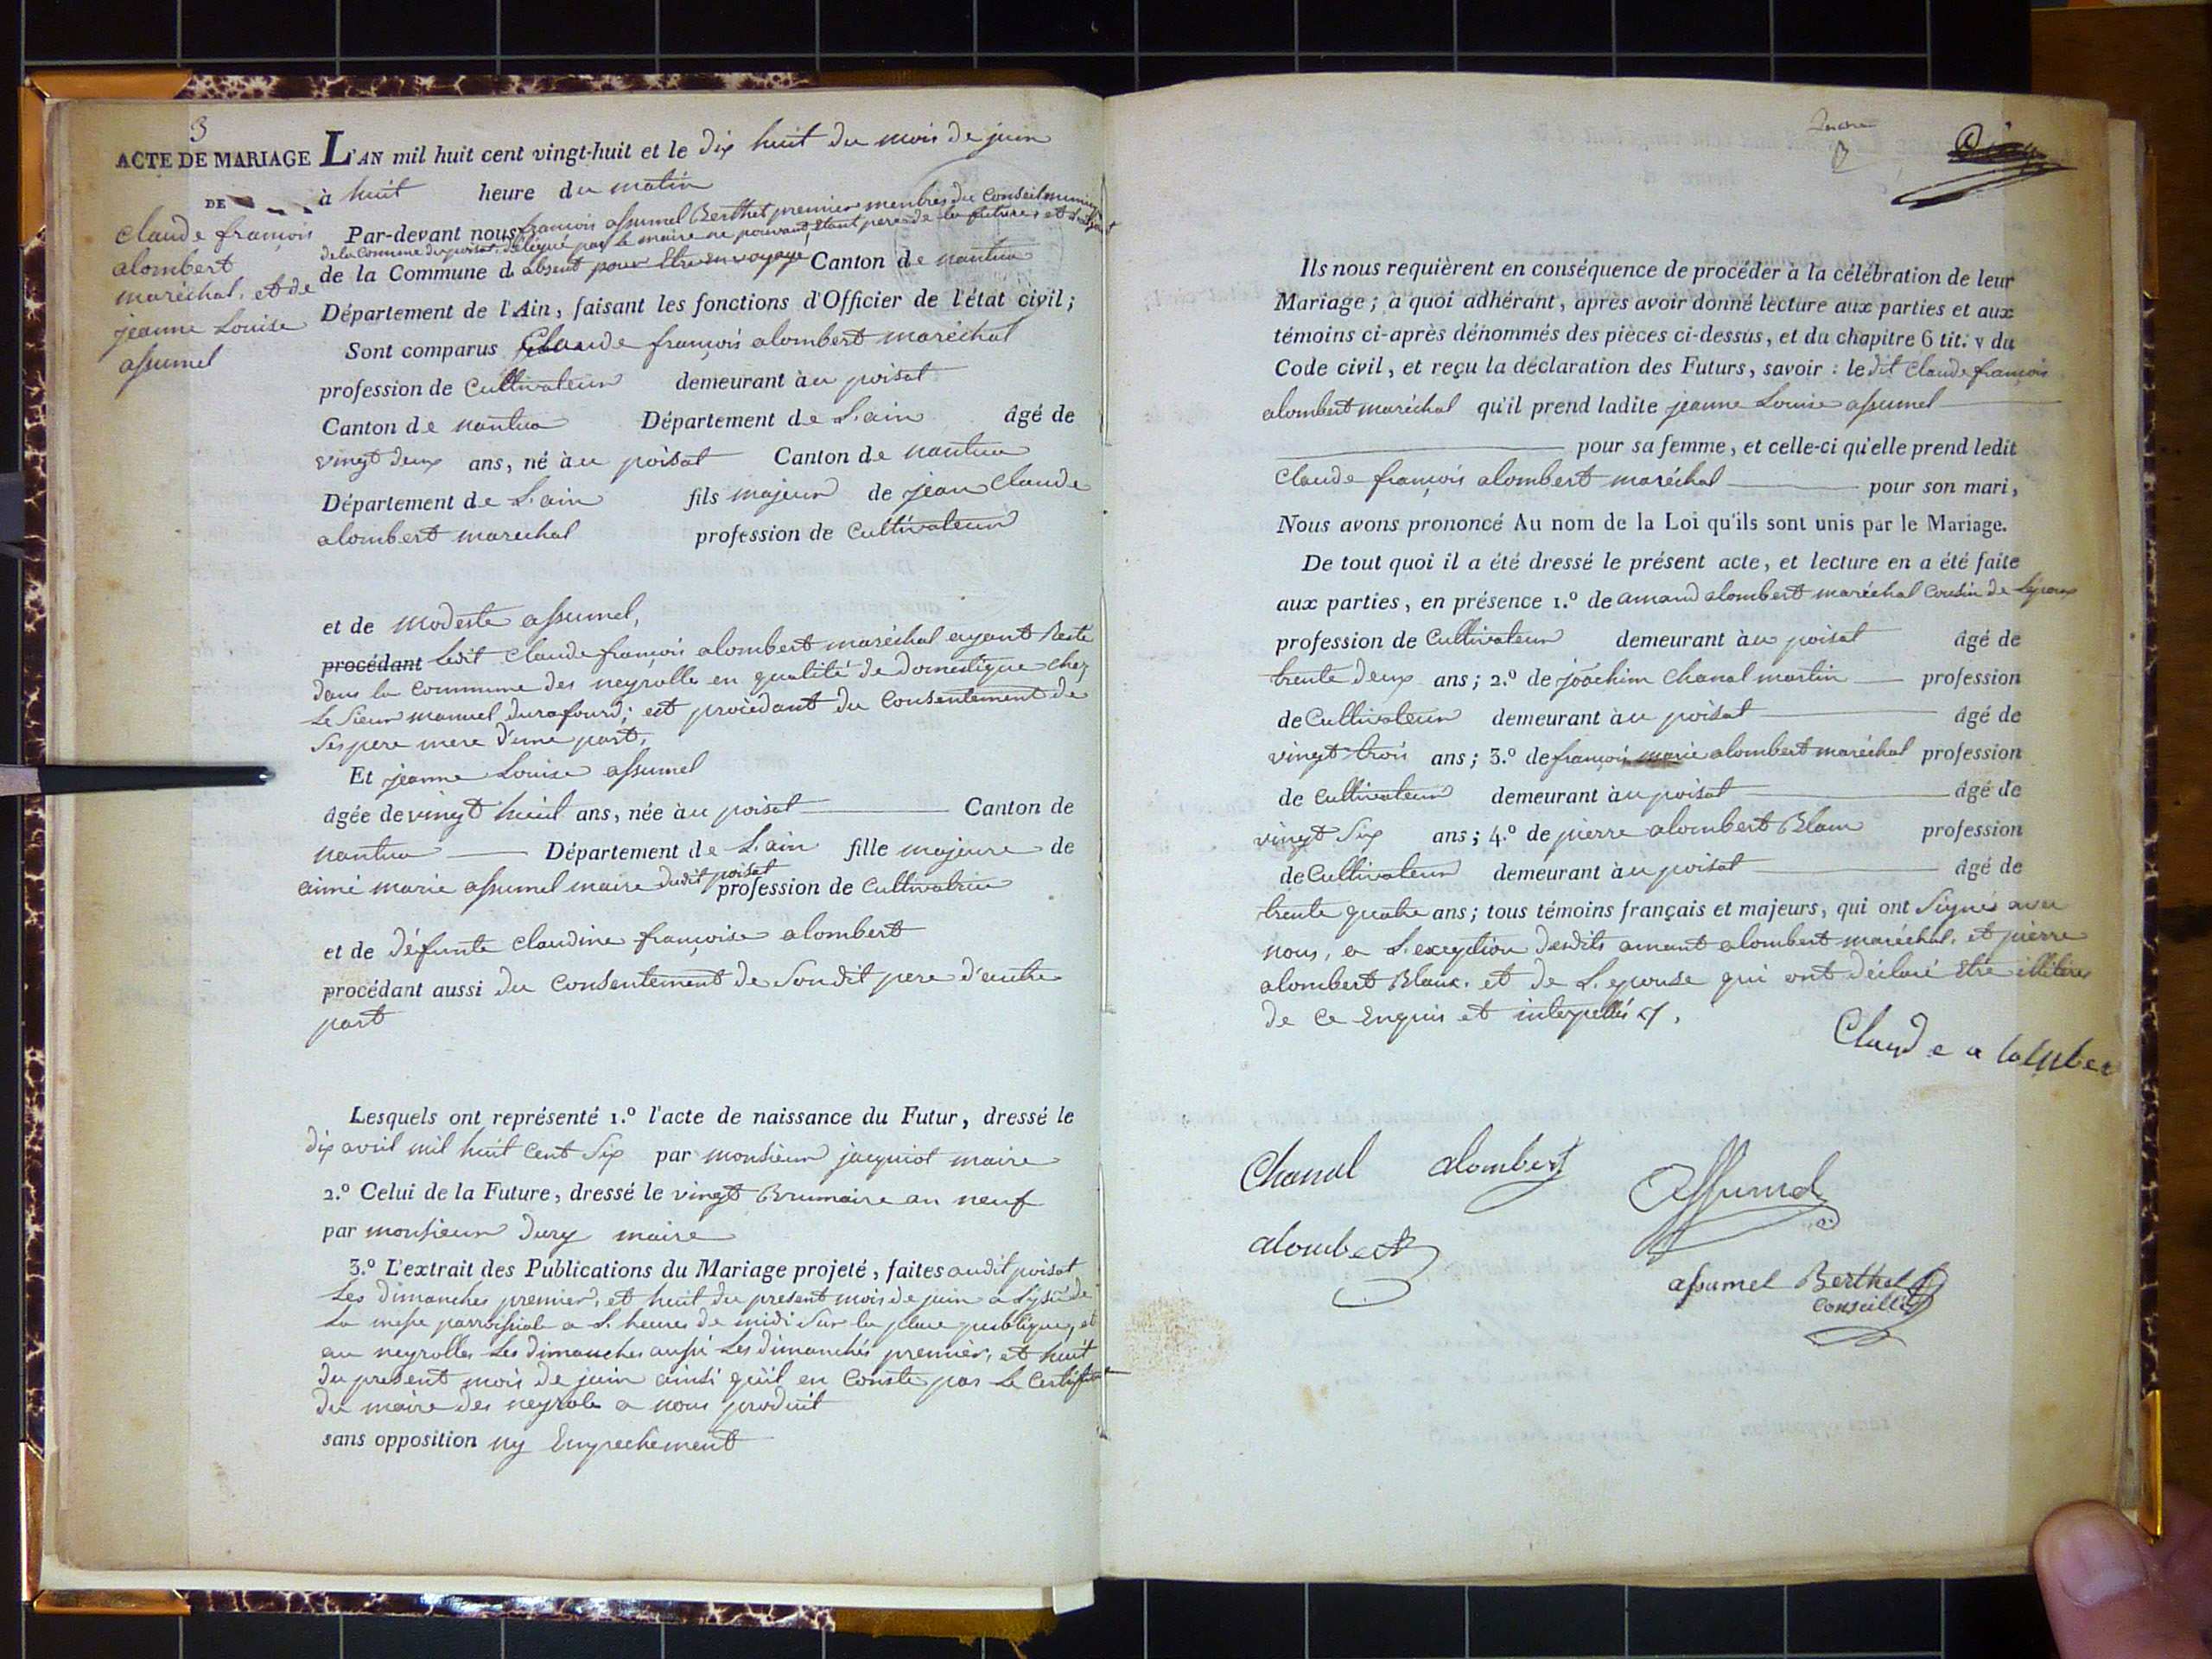 3
ACTE DE MARIAGE
DE
claude françois
alombert
maréchal, et de
jeanne Louise
assumel
L'AN mil huit cent vingt-huit et le dix huit du mois de juin
à huit heure du matin
Par-devant nous françois assumel Berthet premier membres du Conseil
de la Commune du poisat, délégué par le maire ne pouvant, étant pere de la future, et
de la Commune d absent pour Etre en voyage Canton de nantua
Département de l'Ain, faisant les fonctions d'Officier de l'état civil;
Sont comparus Claude françois alombert maréchal
profession de Cultivateur demeurant àu poisat
Canton de nantua Département de L'ain âgé de
vingt deux ans, né àu poisat Canton de nantua
Département de L'ain fils majeur de jean Claude
alombert marechal profession de Cultivateur
et de modeste assumel,
procédant ledit Claude françois alombert maréchal ayant Resté
dans la Commune des neyrolle en qualité de domestique chez
le Sieur manuel durafourd; est procédant du Consentement de
Ses pere mere d'une part,
Et jeanne Louise assumel
âgée de vingt huit ans, née àu poisat Canton de
nantua Département de L'ain fille majeure de
aimé marie assumel maire dudit poisat profession de Cultivatrice
et de défunte Claudine françoise alombert
procédant aussi du Consentement de Sondit pere d'autre
part
Lesquels ont représenté 1.º l'acte de naissance du Futur, dressé le
dix avril mil huit Cent Six par monsieur jacquiot maire
2.º Celui de la Future, dressé le vingt Brumaire an neuf
par monsieur Dury maire
3.º L'extrait des Publications du Mariage projeté, faites audit poisat
Les dimanches premier, et huit du present mois de juin a
La messe parroissiale a L'heures de midi Sur la place publique, et
au neyrolles Les dimanches aussi Les dimanches premier, et huit
du present mois de juin ainsi qu'il en Conste par le Certificat
du maire des neyrole a nous produit
sans opposition ny Empechement
Ils nous requièrent en conséquence de procéder à la célébration de leur
Mariage; à quoi adhérant, après avoir donné lecture aux parties et aux
témoins ci-après dénommés des pièces ci-dessus, et du chapitre 6 tit. v du
Code civil, et reçu la déclaration des Futurs, savoir : ledit Claude françois
alombert maréchal qu'il prend ladite jeanne Louise assumel
pour sa femme, et celle-ci qu'elle prend ledit
Claude françois alombert maréchal pour son mari,
Nous avons prononcé Au nom de la Loi qu'ils sont unis par le Mariage.
De tout quoi il a été dressé le présent acte, et lecture en a été faite
aux parties, en présence 1.º de amand alombert maréchal Cousin de
profession de Cultivateur demeurant àu poisat âgé de
trente deux ans; 2.º de joachim Chanal martin profession
de Cultivateur demeurant àu poisat âgé de
vingt trois ans; 3.º de françois marie alombert maréchal profession
de Cultivateur demeurant àu poisat âgé de
vingt Six ans; 4.º de pierre alombert Blanc profession
de Cultivateur demeurant àu poisat âgé de
trente quatre ans; tous témoins français et majeurs, qui ont Signés avec
nous, a L'exception desdits amant alombert maréchal, et pierre
alombert Blanc. et de L'epouse qui ont déclaré Etre illiteres
de Ce Enquis et interpellés
Claude a lolmber
Chanal alombert Assumel
alombert
assumel Berthet
Conseiller